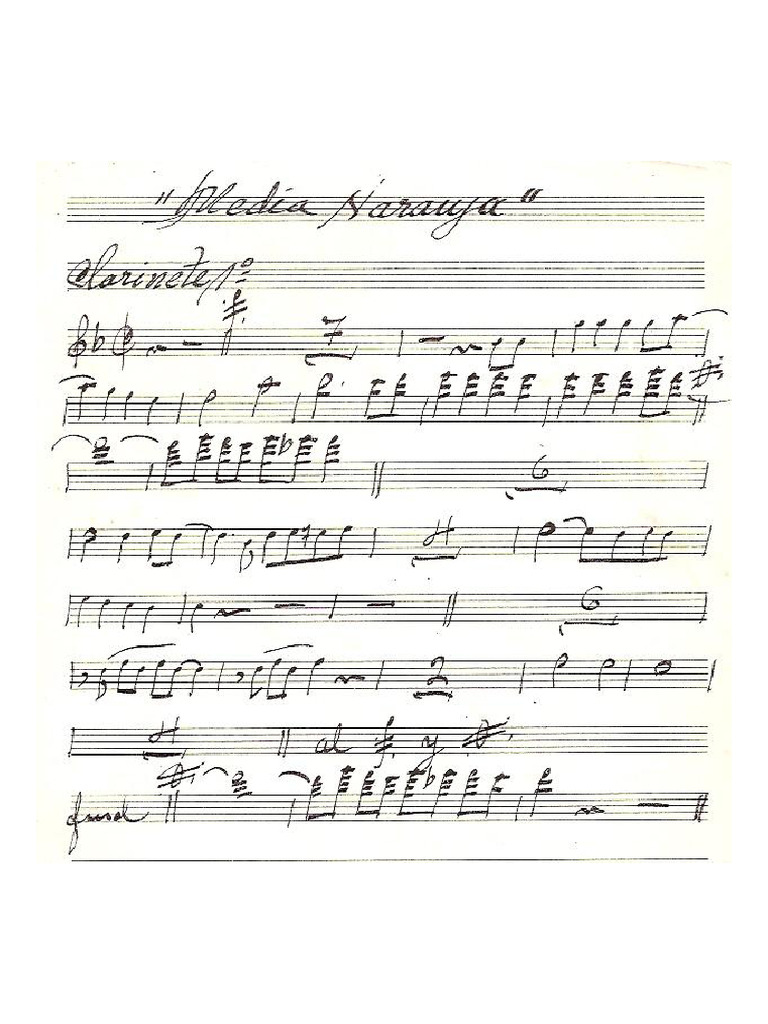 "Media Naranja"
Clarinete 1º
7
6
4
6
2
4 al y
final